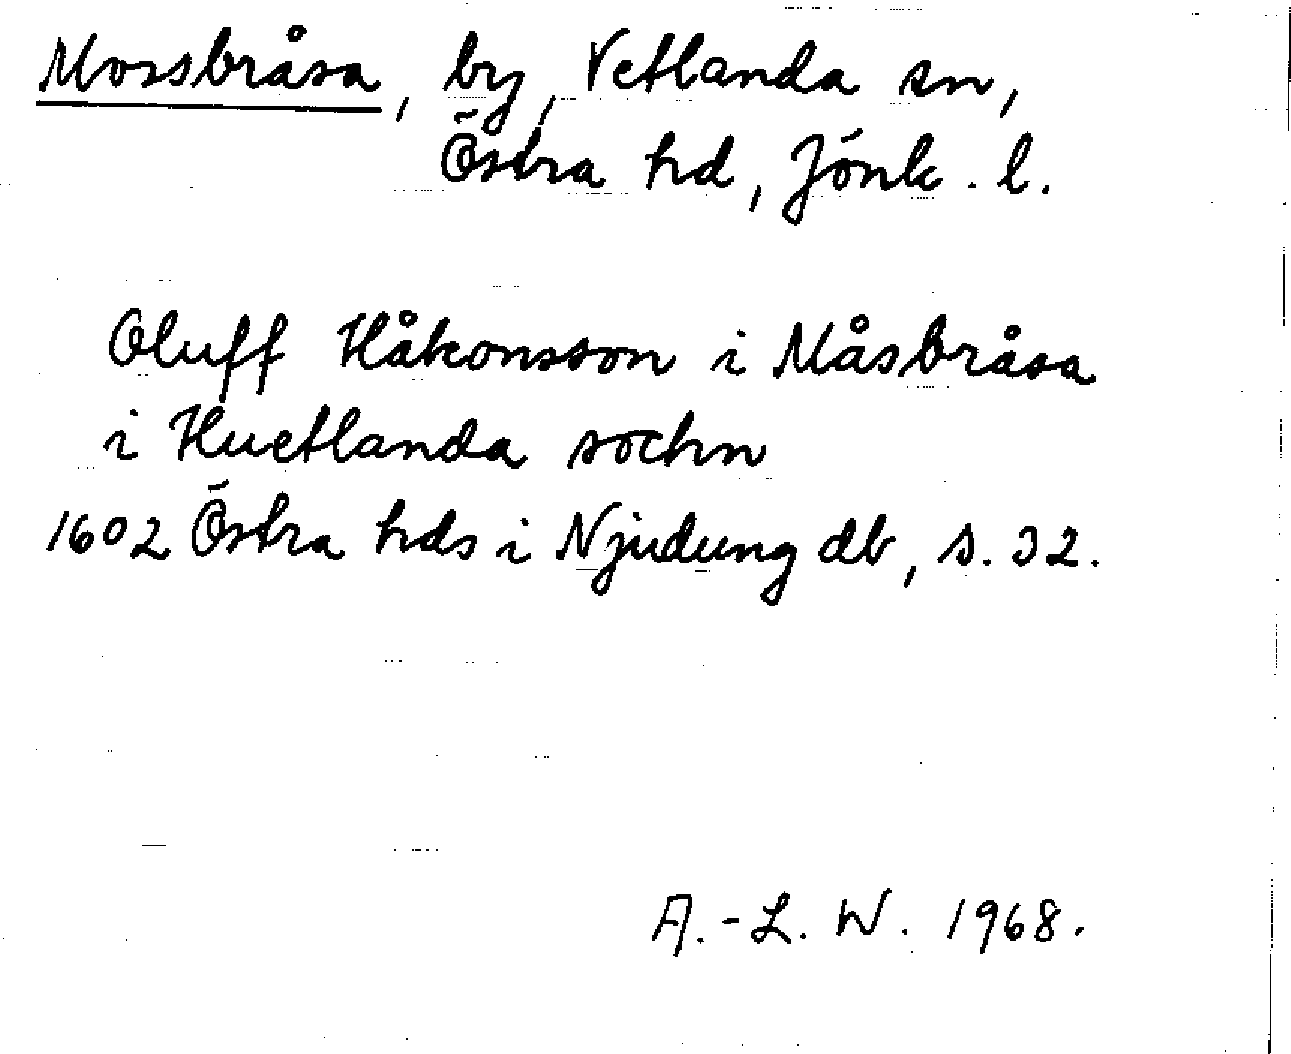 Mossbråsa, by, Vetlanda sn,
Östra hd, Jönk. l.
Oluff Håkonsson i Måsbråsa
i Huetlanda sochn
1602 Östra hds i Njudung db, s. 32.
A.-L. W. 1968.